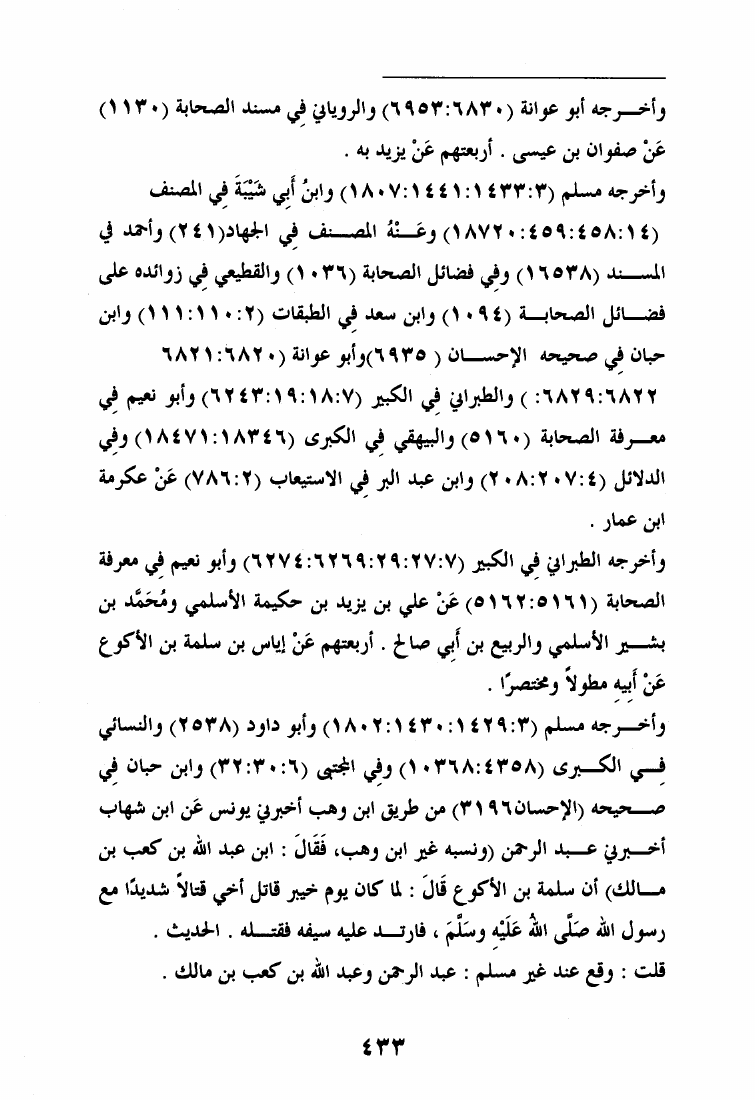 وأخـــرجه أبو عوانة (٦٨٣٠:٦٩٥٣) والروياني في مسند الصحابة (١١٣٠)
عَنْ صفوان بن عيسى . أربعتهم عَنْ يزيد به .
وأخرجه مسلم (٣:١٤٣٣:١٤٤١:١٨٠٧) وابنُ أَبي شَيْبَةَ في المصنف
(١٤:٤٥٨:٤٥٩:١٨٧٢٠) وعَـــنْهُ المصـــنف في الجهاد(٢٤١) وأحمد في
المســـند (١٦٥٣٨) وفي فضائل الصحابة (١٠٣٦) والقطيعي في زوائده على
فضـــائل الصحابـــة (١٠٩٤) وابن سعد في الطبقات (٢:١١٠:١١١) وابن
حبان في صحيحه الإحســـان ( ٦٩٣٥)وأبو عوانة (٦٨٢٠:٦٨٢١
٦٨٢٢:٦٨٢٩: ) والطبراني في الكبير (٧:١٨:١٩:٦٢٤٣) وأبو نعيم في
معـــرفة الصحابة (٥١٦٠) والبيهقي في الكبرى (١٨٣٤٦:١٨٤٧١) وفي
الدلائل (٤:٢٠٧:٢٠٨) وابن عبد البر في الاستيعاب (٢:٧٨٦) عَنْ عكرمة
ابن عمار .
وأخرجه الطبراني في الكبير (٧:٢٧:٢٩:٦٢٦٩:٦٢٧٤) وأبو نعيم في معرفة
الصحابة (٥١٦١:٥١٦٢) عَنْ علي بن يزيد بن حكيمة الأسلمي ومُحَمَّد بن
بشـــير الأسلمي والربيع بن أَبي صالح . أربعتهم عَنْ إياس بن سلمة بن الأكوع
عَنْ أَبيه مطولاً ومختصرًا .
وأخـــرجه مسلم (٣:١٤٢٩:١٤٣٠:١٨٠٢) وأبو داود (٢٥٣٨) والنسائي
فـــي الكـــبرى (٤٣٥٨:١٠٣٦٨) وفي المجتبى (٦:٣٠:٣٢) وابن حبان في
صـــحيحه (الإحسان٣١٩٦) من طريق ابن وهب أخبرني يونس عَن ابن شهاب
أخـــبرني عـــبد الرحمن (ونسبه غير ابن وهب، فَقَالَ : ابن عبد الله بن كعب بن
مـــالك) أن سلمة بن الأكوع قَالَ : لما كان يوم خيبر قاتل أخي قتالاً شديدًا مع
رسول الله صَلَّى اللهُ عَلَيْهِ وسَلَّمَ ، فارتـــد عليه سيفه فقتـــله . الحديث .
قلت : وقع عند غير مسلم : عبد الرحمن وعبد الله بن كعب بن مالك .
٤٣٣